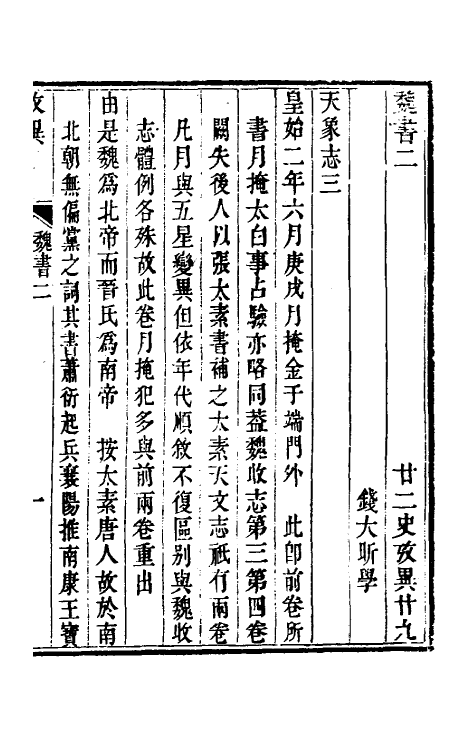 魏書二　廿二史攷異廿九
錢大昕學
天象志三
皇始二年六月庚戌月掩金于端門外　此卽前卷所
書月掩太白事占驗亦略同葢魏收志第三第四卷
闕失後人以張太素書補之太素天文志祇有兩卷
凡月與五星變異但依年代順敘不復區别與魏收
志體例各殊故此卷月掩犯多與前兩卷重出
由是魏爲北帝而晉氏爲南帝　按太素唐人故於南
北朝無偏黨之詞其書蕭衍起兵襄陽推南康王寶
攷異　魏書二　一